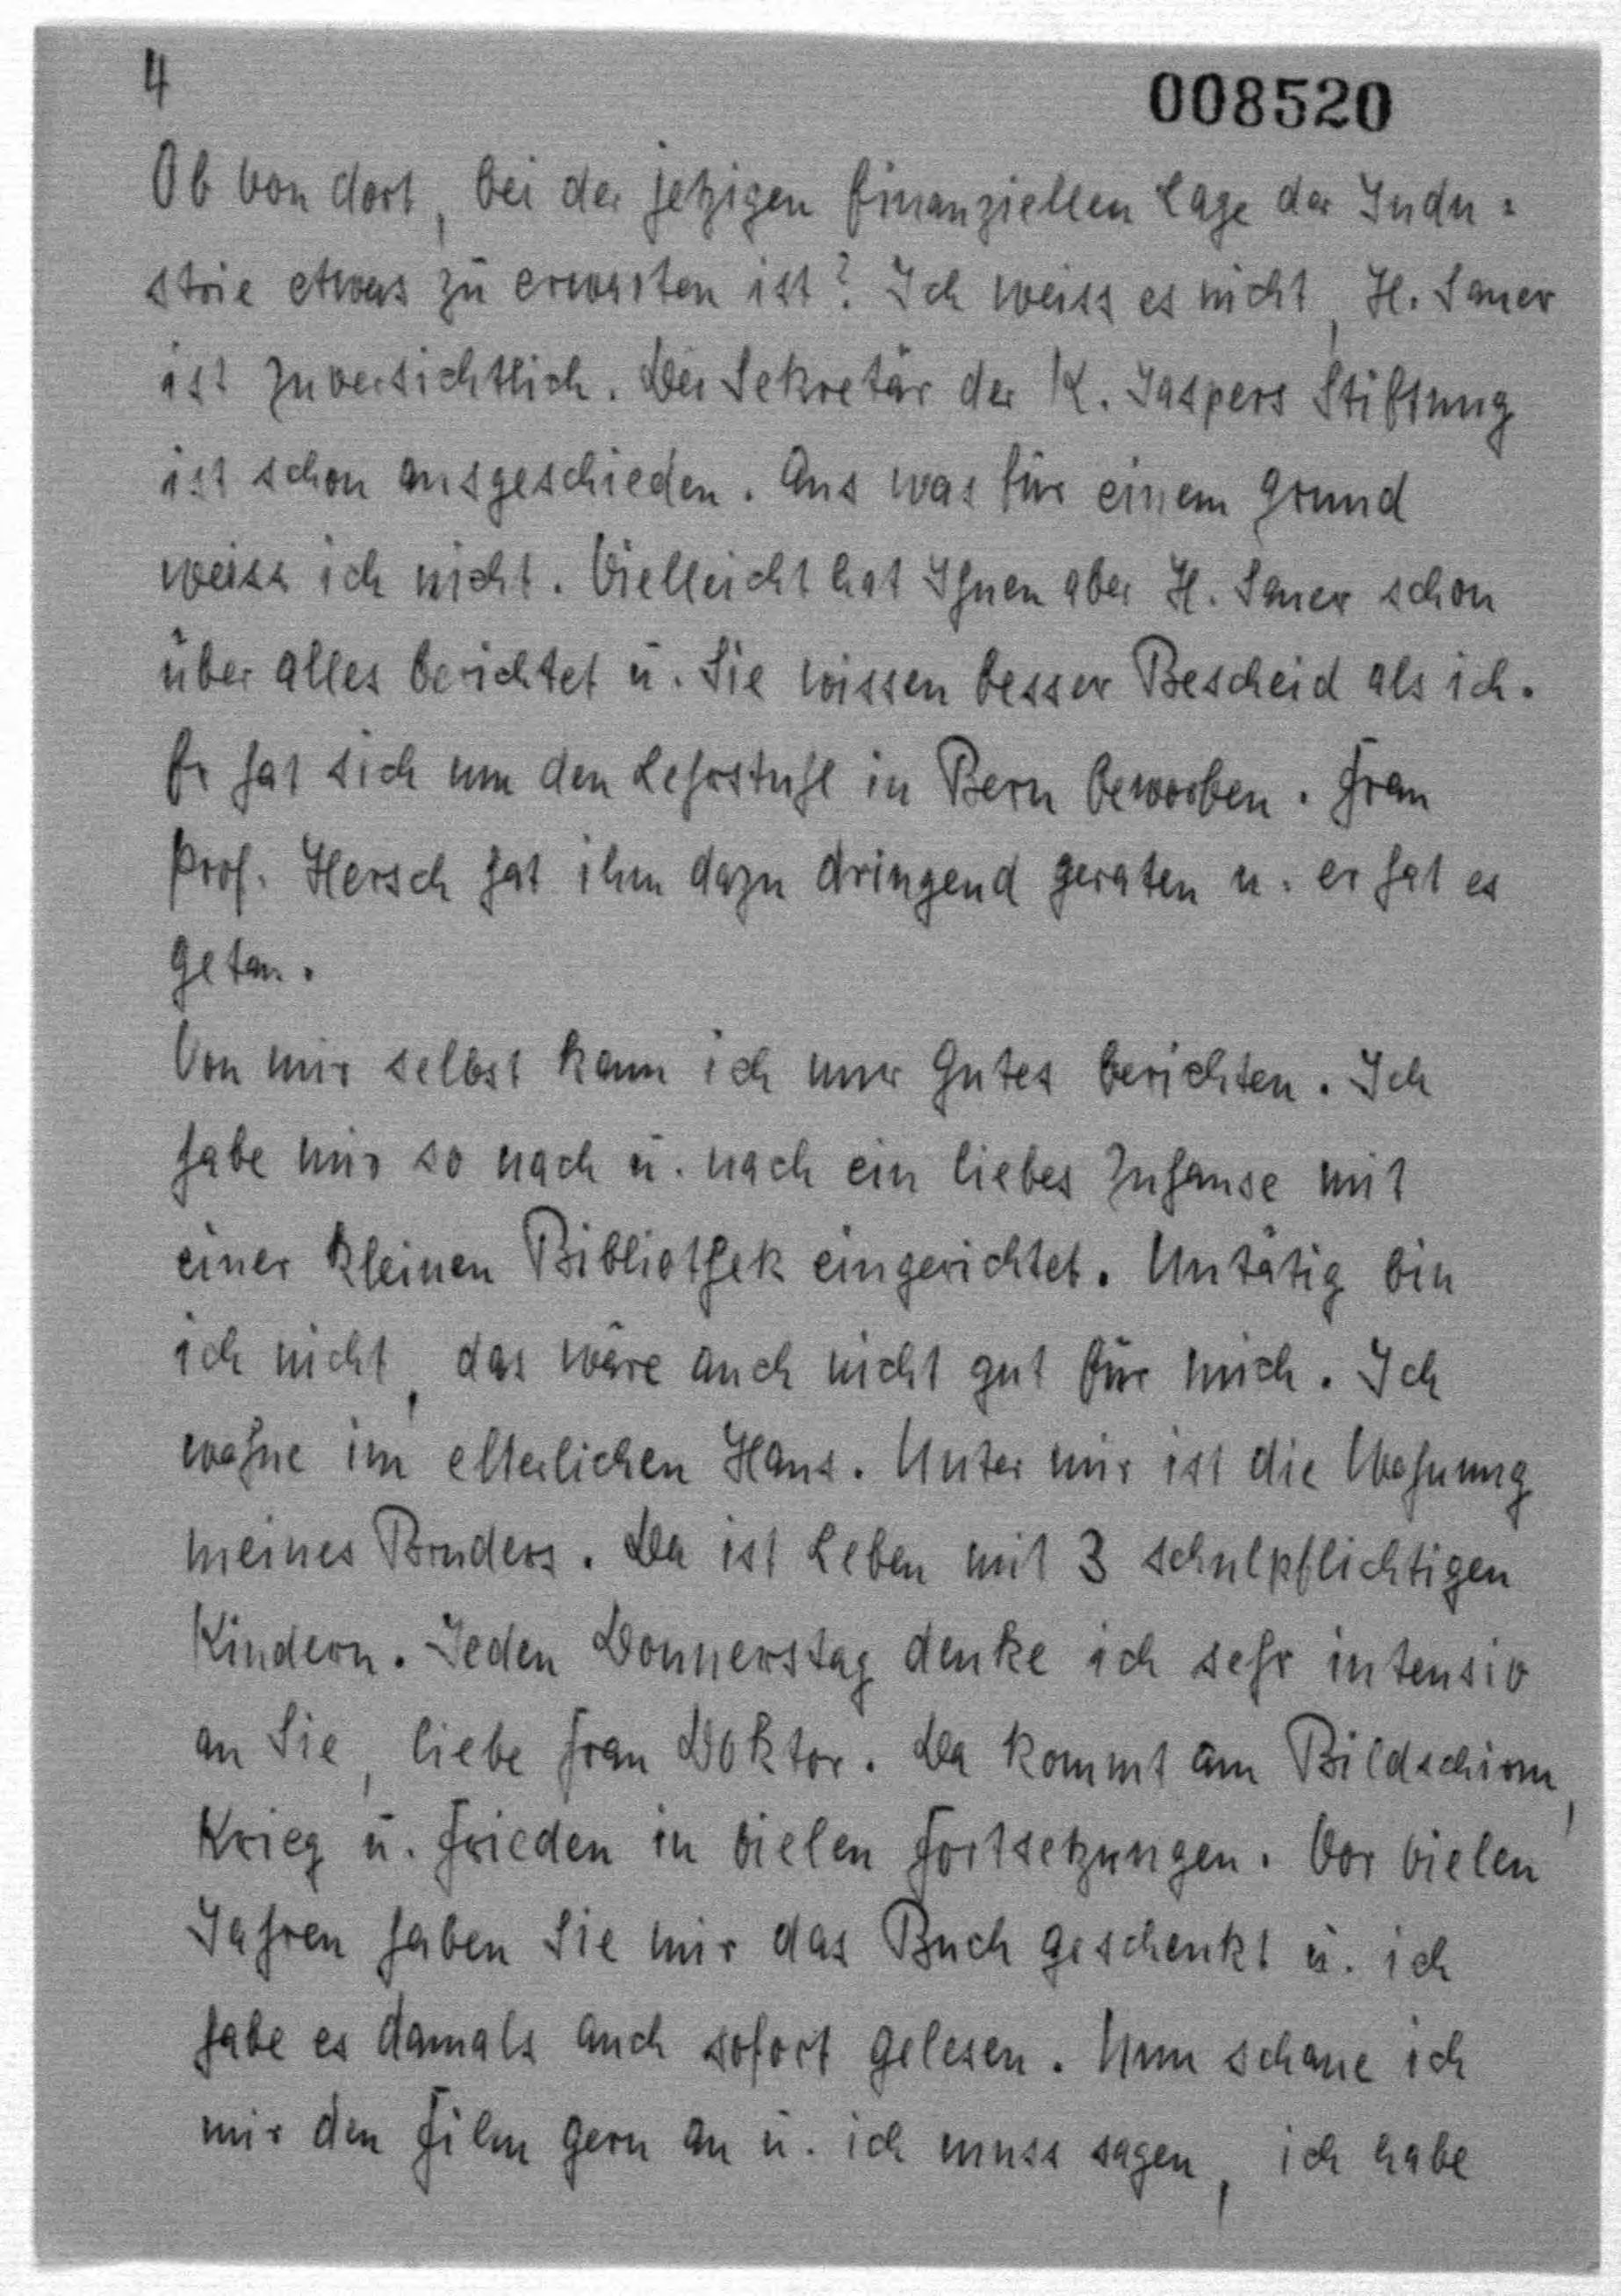 4
008520
Ob von dort, bei der jetzigen finanziellen Lage der Indu=
strie etwas zu erwarten ist? Ich weiss es nicht, H. Saner
ist zuversichtlich. Der Sekretär der K. Jaspers Stiftung
ist schon ausgeschieden. Aus was für einem Grund
weiss ich nicht. Vielleicht hat Ihnen aber H. Saner schon
über alles berichtet u. Sie wissen besser Bescheid als ich.
Er hat sich um den Lehrstuhl in Bern beworben. Frau
Prof. Hersch hat ihm dazu dringend geraten u. er hat es
getan.
Von mir selbst kann ich nur Gutes berichten. Ich
habe mir so nach u. nach ein liebes Zuhause mit
einer kleinen Bibliothek eingerichtet. Untätig bin
ich nicht, das wäre auch nicht gut für mich. Ich
wohne im elterlichen Haus. Unter mir ist die Wohnung
meines Bruders. Da ist Leben mit 3 schulpflichtigen
Kindern. Jeden Donnerstag denke ich sehr intensiv
an Sie, liebe Frau Doktor. Da kommt am Bildschirm,
Krieg u. Frieden in vielen Fortsetzungen. Vor vielen
Jahren haben Sie mir das Buch geschenkt u. ich
habe es damals auch sofort gelesen. Nun schaue ich
mir den Film gern an u. ich muss sagen, ich habe